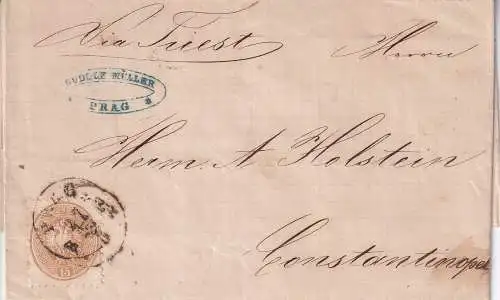 Via Triest
Herrn
RUDOLF MÜLLER
PRAG
Herm. A Holstein
Constantinopel
15